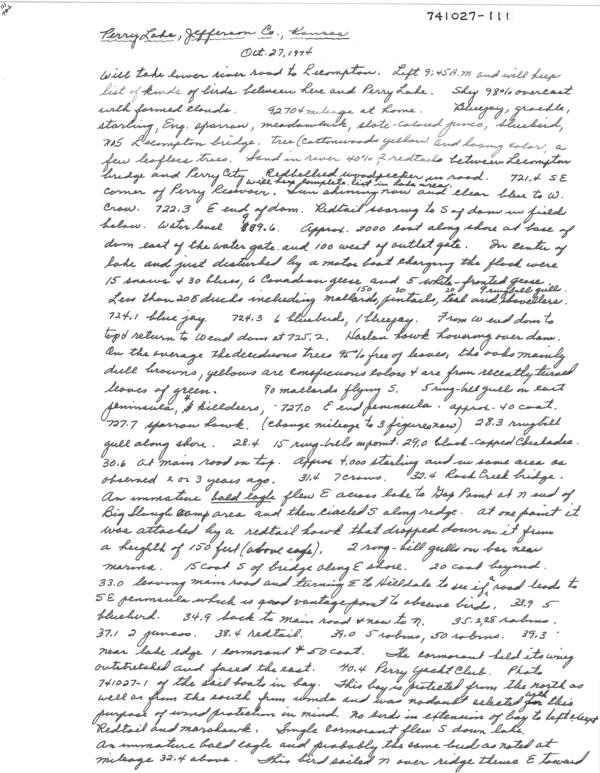 741027-111
Perry Lake, Jefferson Co., Kansas
Oct. 27, 1974
Will take lower river road to Lecompton. Left 9:45 A.M and will keep
list of kinds of birds between here and Perry Lake. Sky 98% overcast
with formed clouds. 92704 mileage at home. Bluejay, grackle,
starling, Eng. sparrow, meadowlark, slate-colored junco, bluebird,
Lecompton bridge. tree (cottonwoods yellow and losing color, a
few leafless trees. Sand in river 40% 2 redtails between Lecompton
bridge and Perry City Redbellied woodpecker in road. 721.4 SE
corner of Perry Resevoir. will keep complete list in lake area Sun shining now and clear blue to W.
Crow. 722.3 E end of dam. Redtail soaring to S of dam in field
below. Water level 889.6. Approx. 2000 coot along shore at base of
dam east of the water gate and 100 west of outlet gate. In center of
lake and just disturbed by a motor boat charging the flock were
15 snows & 30 blues, 6 Canadian geese and 5 white-fronted geese
Less than 205 ducks including mallards 150, pintails 30, teal 20 and shovellers. 9 ringbill gull
724.1 blue jay. 724.3 6 bluebirds, 1 bluejay. From W end dom to
top & return to W end dom at 725.2. Harlan hawk hovering over dam.
On the average the deciduous trees 95% free of leaves, the oaks mainly
dull browns, yellows are conspicuous colors & are from recently turned
leaves of green. 90 mallards flying S. 5 ring-bell gull on east
peninsula, 4 killdeers, 727.0 E end peninsula. approx. 40 coot.
727.7 sparrow hawk. (change mileage to 3 figures now) 28.3 ringbill
gull along shore. 28.4 15 ring-bells on point. 29.0 black-capped Chickadee.
30.6 at main road on top. Approx 4,000 starling and in same area as
observed 2 or 3 years ago. 31.4 7 crows. 32.4 Rock Creek bridge.
An immature bald eagle flew E across lake to Gap Point at N end of
Big Slough Camp area and then circled S along ridge. At one point it
was attacked by a redtail hawk that dropped down on it from
a heighth of 150 feet (above eagle). 2 ring-bill gulls on bar near
marina. 15 coot S of bridge along E shore. 20 coot beyond.
33.0 leaving main road and turning E to Hilldale to see if a road leads to
SE peninsula which is good vantage point to observe birds. 33.9 5
bluebird. 34.9 back to main road & now to N. 35.2, 28 robins.
37.1 2 juncos. 38.4 redtail. 39.0 5 robins, 50 robins. 39.3
near lake edge 1 cormorant & 50 coot. The cormorant held its wing
outstretched and faced the east. 40.4 Perry Yacht Club. Photo
741027-1 of the sail boats in bay. This bay is protected from the north as
well as from the south from winds and was no doubt selected with this
purpose of wind protection in mind. No birds in extension of bay to left except
Redtail and marshawk. Single cormorant flew S down lake.
An immature bald eagle and probably the same bird as noted at
mileage 32.4 above. This bird sailed N over ridge thence E toward